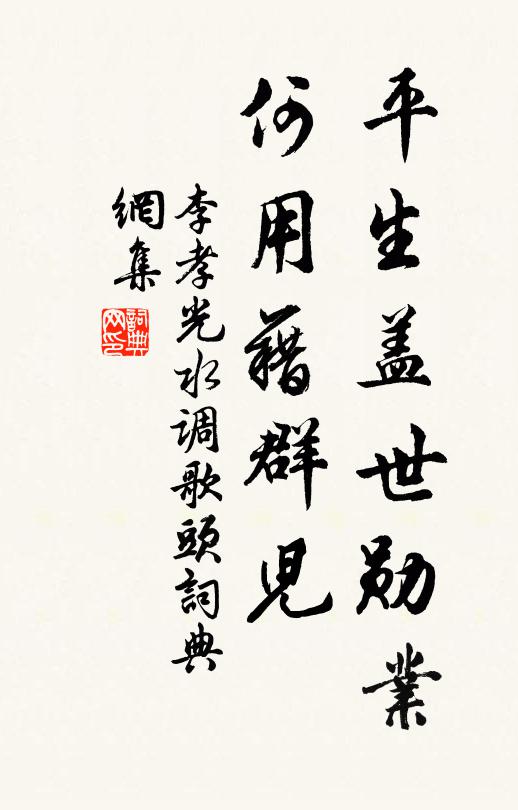 平生盖世勋業
何用藉群児
李孝光水调歌頭詞典
網集
詞典网印